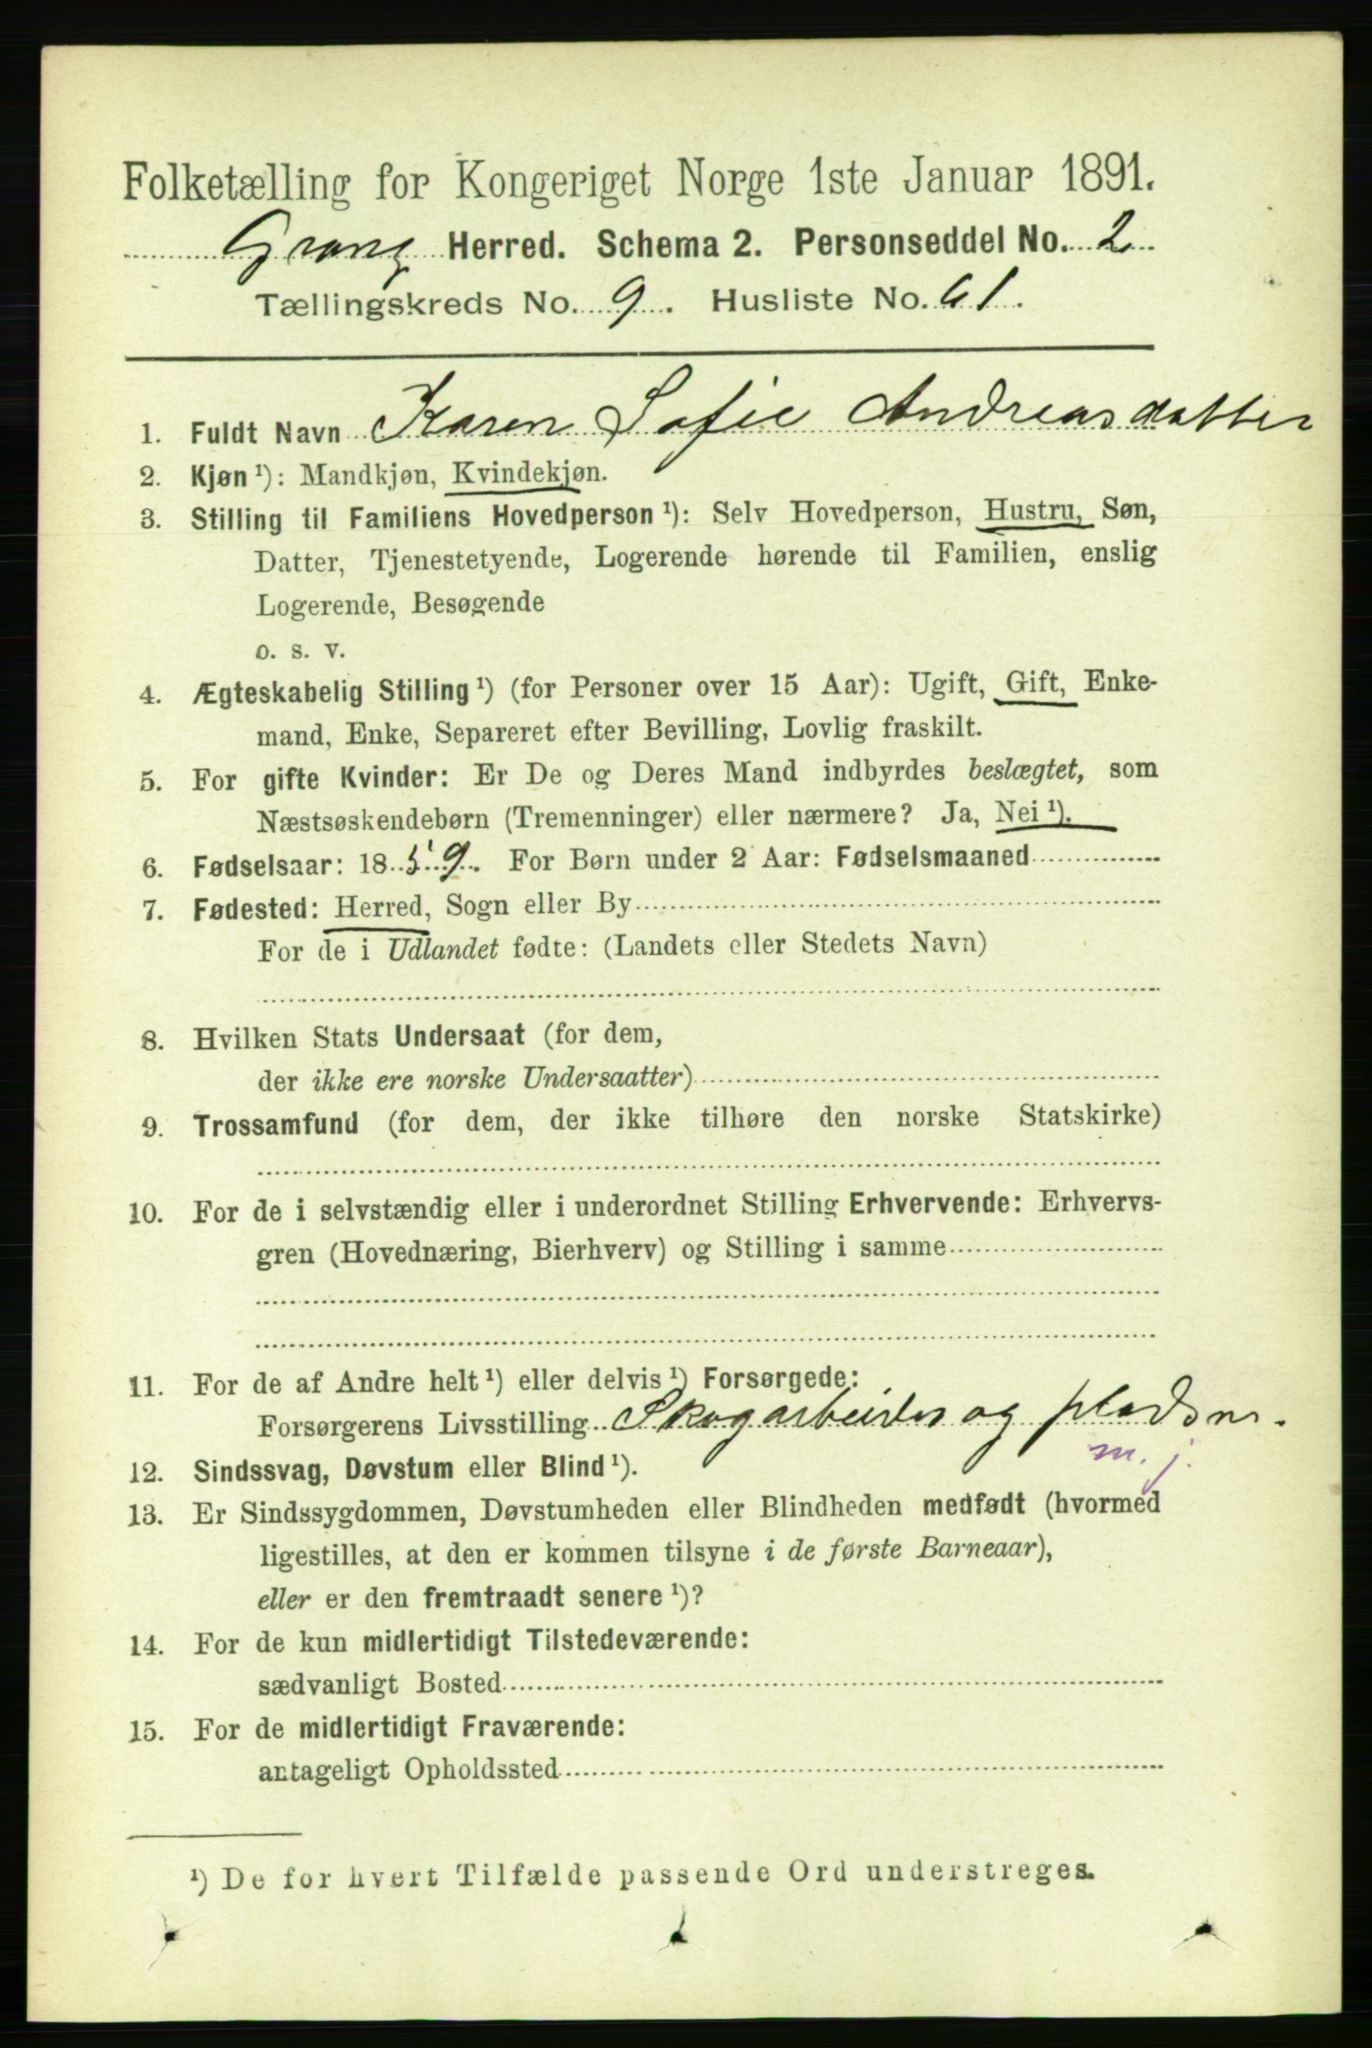 Folketælling for Kongeriget Norge 1ste Januar 1891.
Grong Herred. Schema 2. Personseddel No. 2
Tællingskreds No. 9. Husliste No. 61.
1. Fuldt Navn Karen Sofie Andreasdatter
2. Kjøn ¹): Mandkjøn, Kvindekjøn.
3. Stilling til Familiens Hovedperson ¹): Selv Hovedperson, Hustru, Søn,
Datter, Tjenestetyende, Logerende hørende til Familien, enslig
Logerende, Besøgende
o. s. v.
4. Ægteskabelig Stilling ¹) (for Personer over 15 Aar): Ugift, Gift, Enke-
mand, Enke, Separeret efter Bevilling, Lovlig fraskilt.
5. For gifte Kvinder: Er De og Deres Mand indbyrdes beslægtet, som
Næstsøskendebørn (Tremenninger) eller nærmere? Ja, Nei ¹).
6. Fødselsaar: 1859. For Børn under 2 Aar: Fødselsmaaned
7. Fødested: Herred, Sogn eller By
For de i Udlandet fødte: (Landets eller Stedets Navn)
8. Hvilken Stats Undersaat (for dem,
der ikke ere norske Undersaatter)
9. Trossamfund (for dem, der ikke tilhøre den norske Statskirke)
10. For de i selvstændig eller i underordnet Stilling Erhvervende: Erhvervs-
gren (Hovednæring, Bierhverv) og Stilling i samme
11. For de af Andre helt ¹) eller delvis ¹) Forsørgede:
Forsørgerens Livsstilling Skogarbeider og pladsm.
m. j.
12. Sindssvag, Døvstum eller Blind ¹).
13. Er Sindssygdommen, Døvstumheden eller Blindheden medfødt (hvormed
ligestilles, at den er kommen tilsyne i de første Barneaar),
eller er den fremtraadt senere ¹)?
14. For de kun midlertidigt Tilstedeværende:
sædvanligt Bosted
15. For de midlertidigt Fraværende:
antageligt Opholdssted
¹) De for hvert Tilfælde passende Ord understreges.